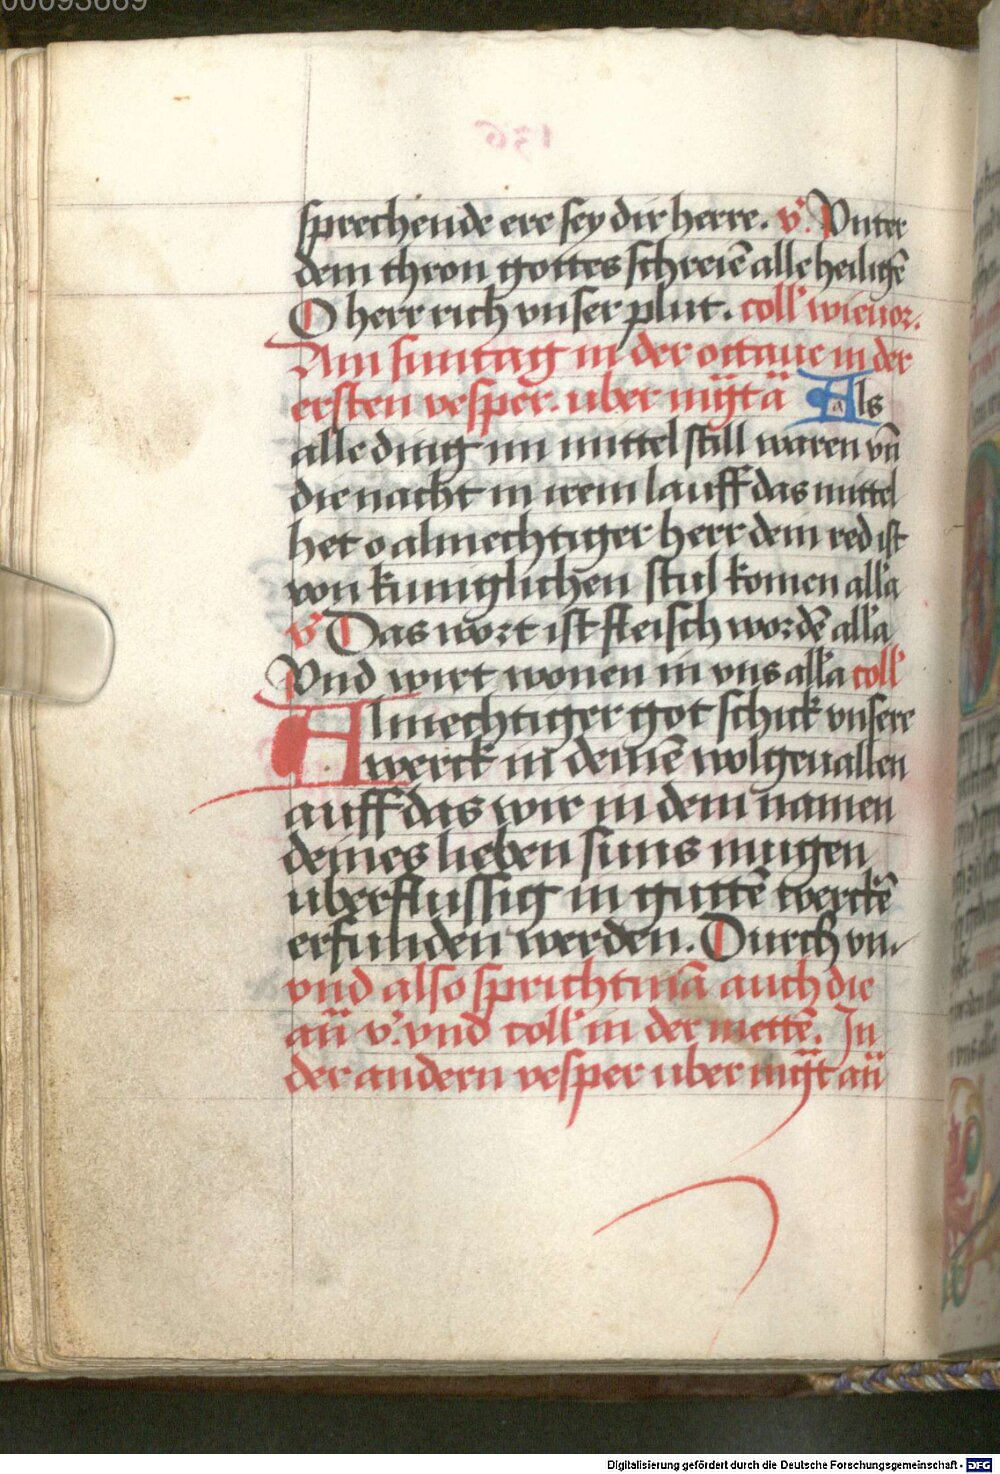 00093669
136
sprechende ere sey dir herre. v̓. Vnter
dem thron gottes schreiē alle heiligē
O herr rich vnser plut. coll̓ wieuor.
Am suntag in der octaue in der
ersten vesper. uber m̄gt ā Als
alle ding im mittel still waren vn̄
die nacht in irem lauff das mittel
het o almechtiger herr dem red ist
von kuniglichen stul komen all̓a
v̓ Das wort ist fleisch wordē all̓a
Vnd wirt wonen in vns all̓a coll̓
Almechtiger got schick vnsere
werck in deinē wolgeuallen
auff das wir in dem namen
deines lieben suns mugen
uberflussig in gutē werckē
erfunden werden. Durch vn.
vnd also spricht mā auch die
an̄ v̓. vnd coll̓ in der mettē. In
der andern vesper uber m̄gt an̄
Digitalisierung gefördert durch die Deutsche Forschungsgemeinschaft - DFG